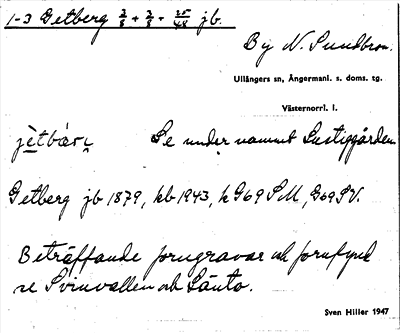 1-3 Getberg 3/8 + 3/8 + 25/48 jb.
By N. Sundbron.
Ullångers sn, Ångermanl. s. doms. tg.
Västernorrl. l.
jètbær̥i̥ Se under namnet Lustiggården
Getberg jb 1879, kb 1943, k G69 SM, G69 SV.
Beträffande forngravar och fornfynd
se Svinvallen och Sånto.
Sven Hiller 1947